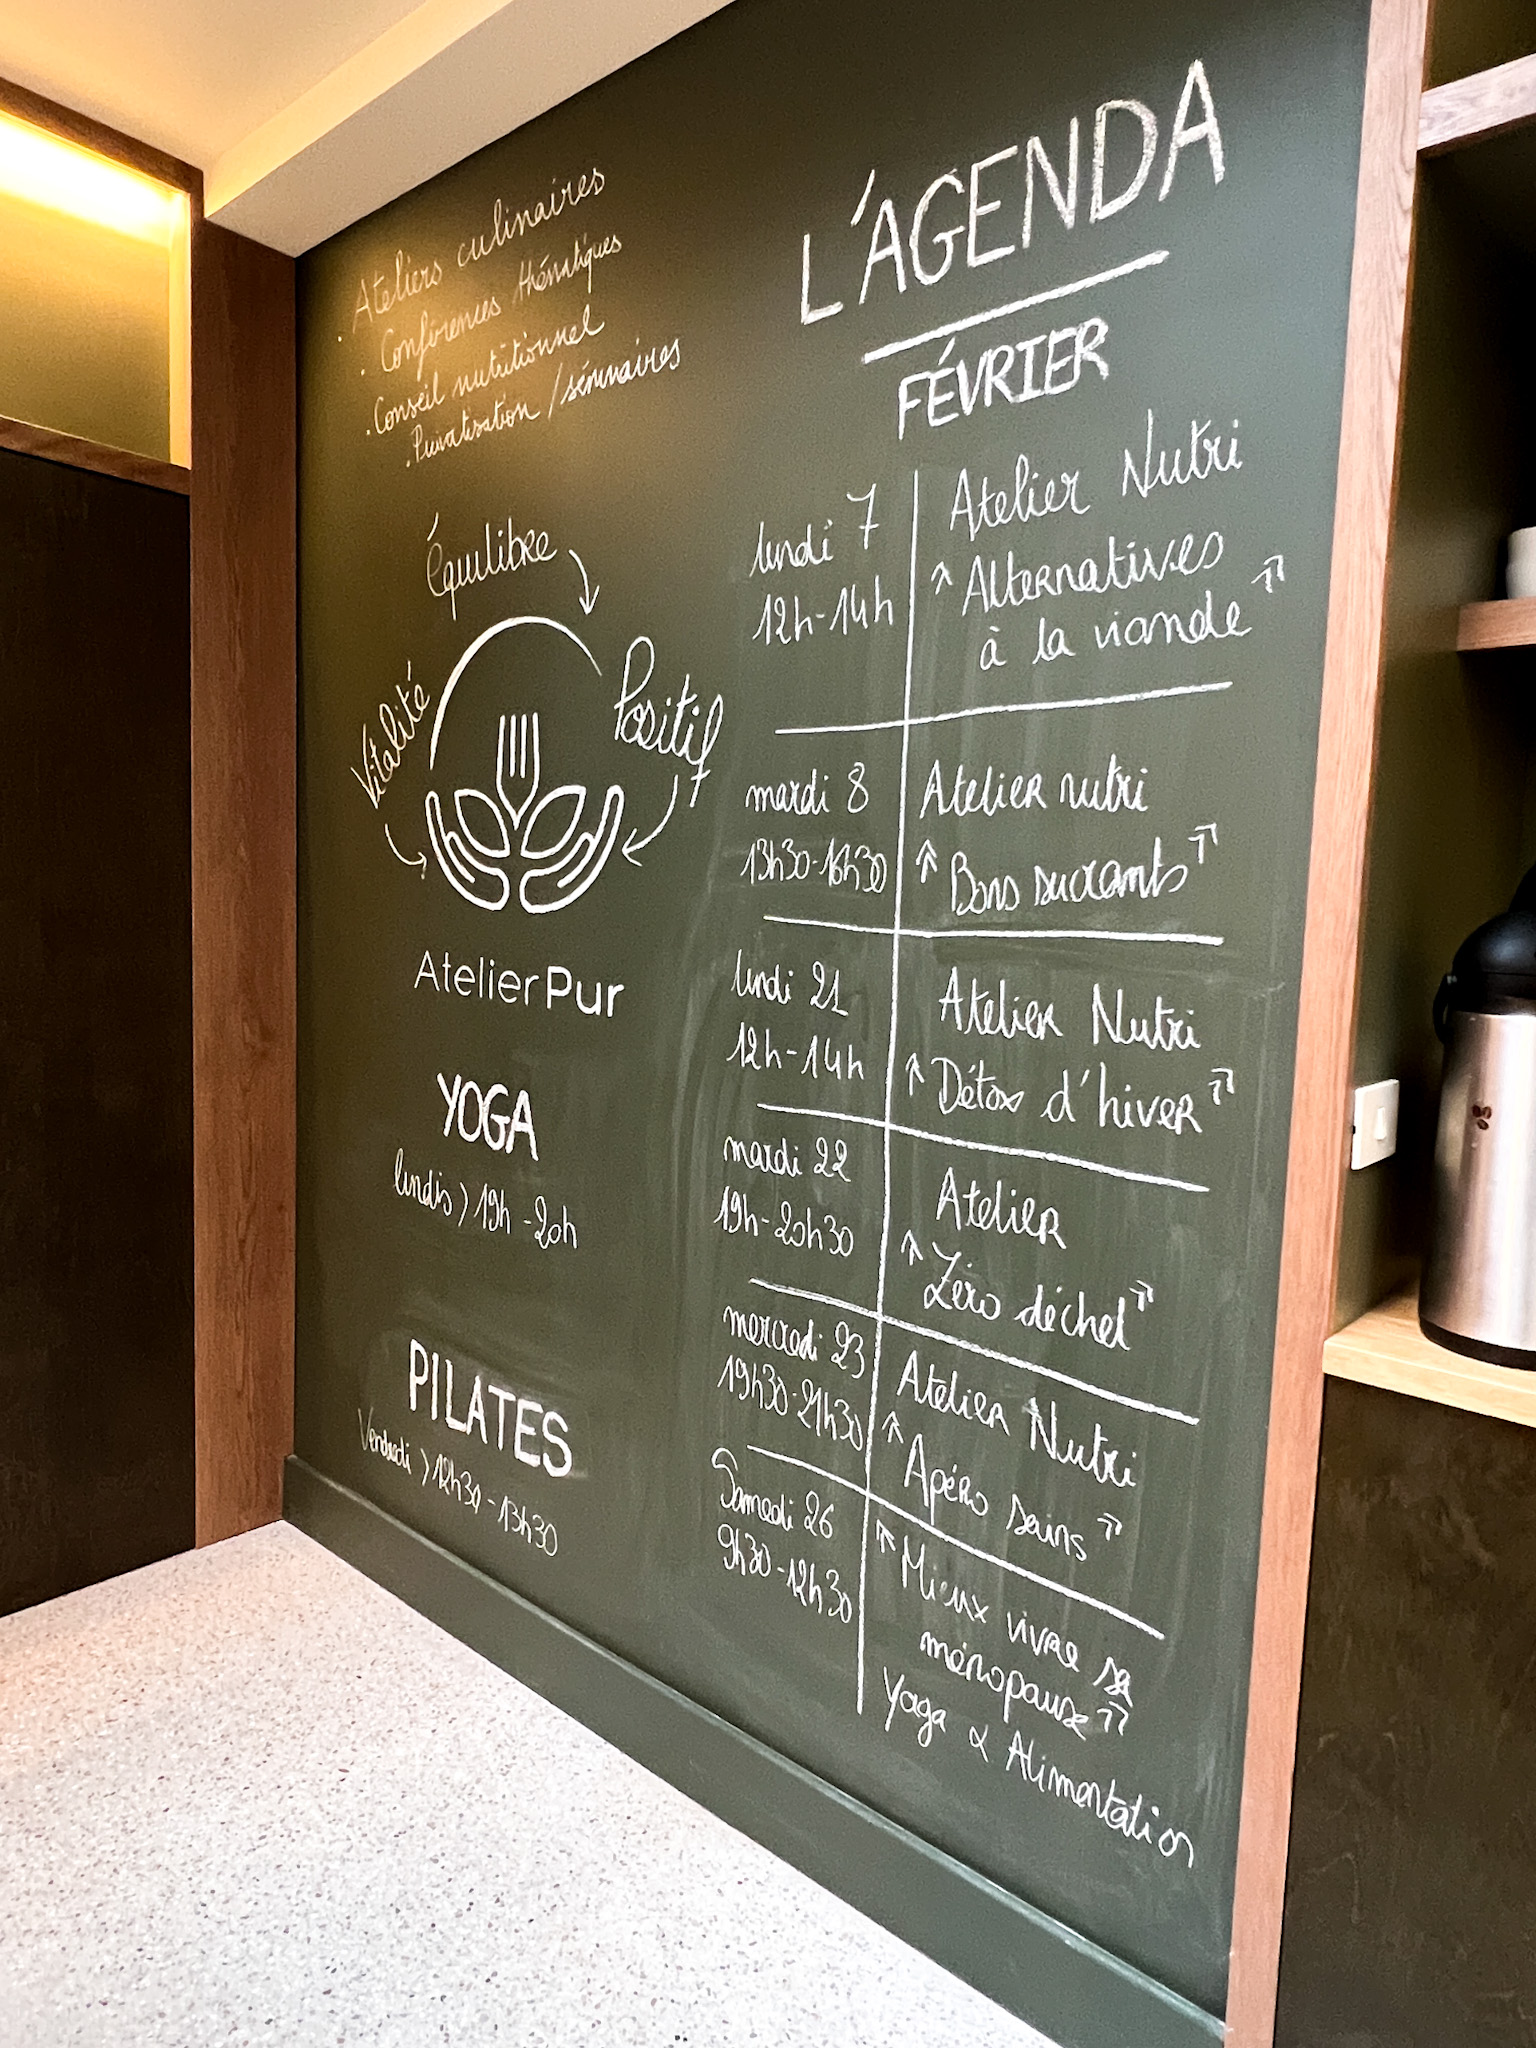 · Ateliers culinaires
· Conférences thématiques
· Conseil nutritionnel
· Privatisation / séminaires
Équilibre
Vitalité
Positif
Atelier Pur
YOGA
lundis > 19h - 20h
PILATES
Vendredi > 12h30 - 13h30
L'AGENDA
FÉVRIER
lundi 7
12h-14h
Atelier Nutri
"Alternatives
à la viande"
mardi 8
13h30-16h30
Atelier nutri
"Bons sucrants"
lundi 21
12h-14h
Atelier Nutri
"Détox d'hiver"
mardi 22
19h-20h30
Atelier
"Zéro déchet"
mercredi 23
19h30-21h30
Atelier Nutri
"Apéro sains"
Samedi 26
9h30-12h30
"Mieux vivre sa
ménopause"
Yoga & Alimentation